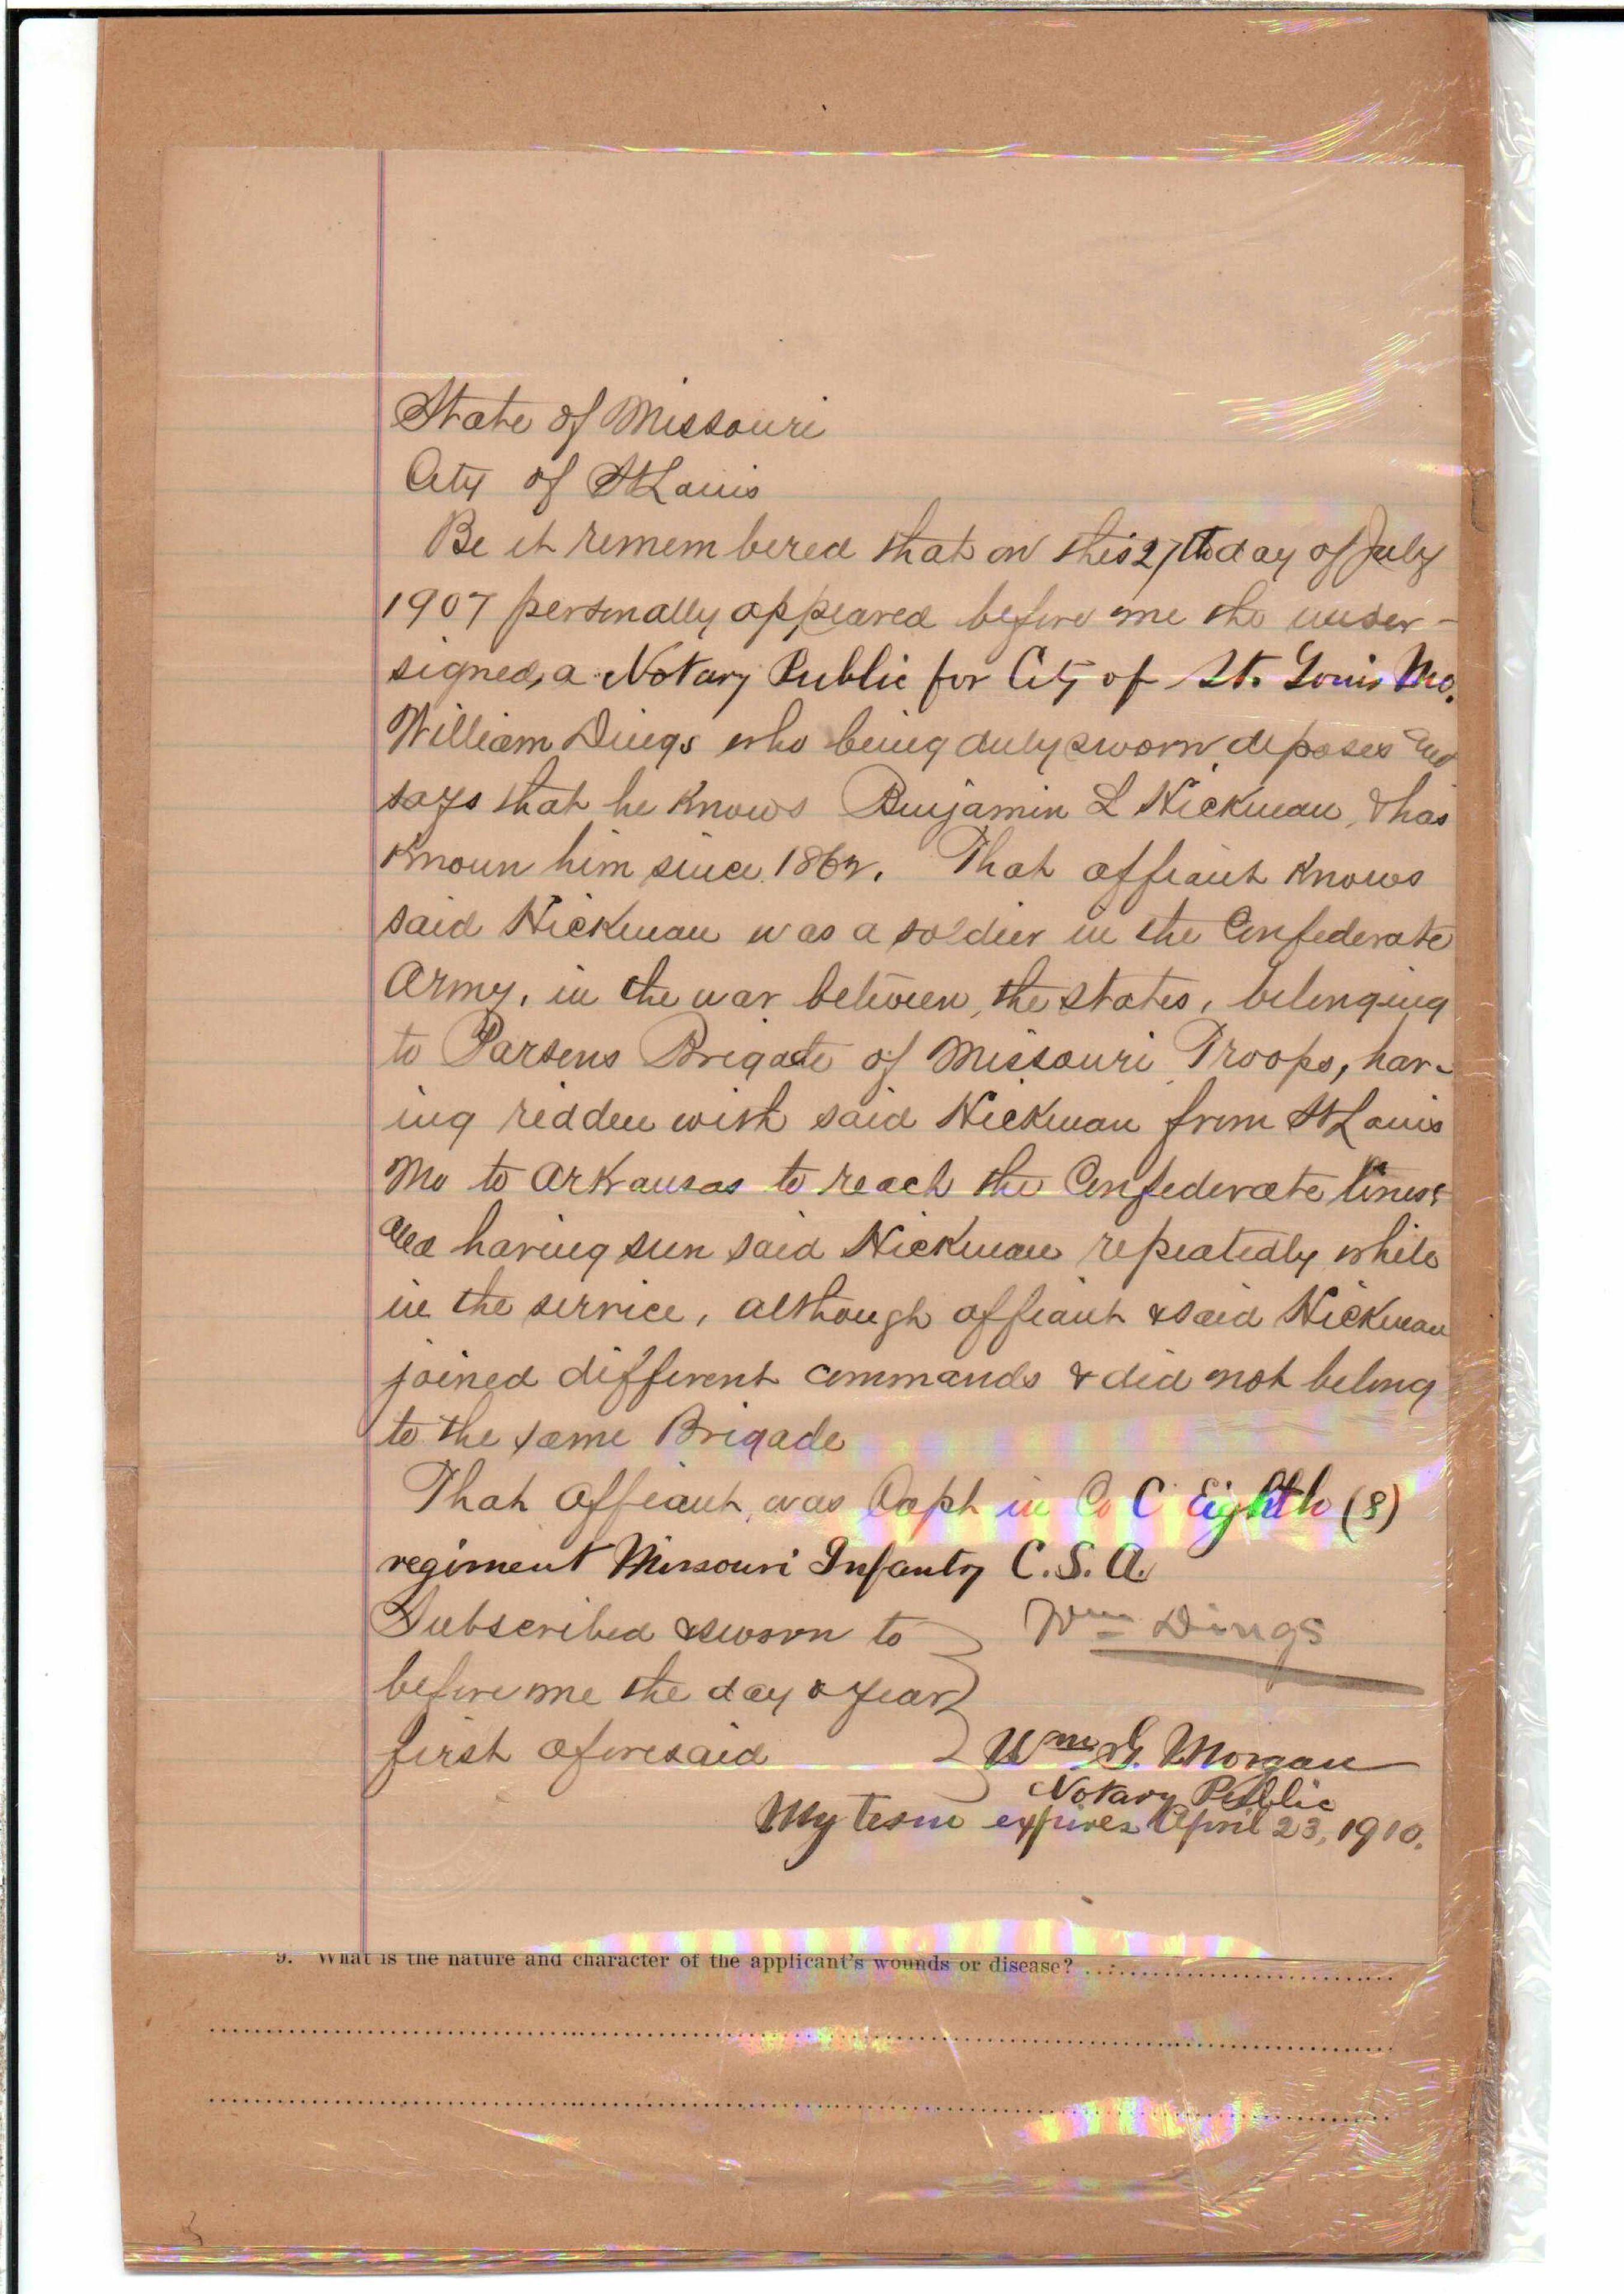 State of Missouri
City of St Louis
Be it remembered that on this 27th day of July
1907 personally appeared before me the under-
signed, a Notary Public for City of St. Louis Mo.
William Dings who being duly sworn, deposes and
says that he knows Benjamin L Hickman, & has
known him since 1862. That affiant knows
said Hickman was a soldier in the Confederate
Army, in the war between, the states, belonging
to Parsons Brigade of Missouri Troops, hav-
ing ridden with said Hickman from St Louis
Mo to Arkansas to reach the Confederate lines
and having seen said Hickman repeatedly while
in the service, although affiant & said Hickman
joined different commands & did not belong
to the same Brigade
That affiant, was Capt in Co C Eighth (8)
regiment Missouri Infantry C.S.A.
Subscribed & sworn to
before me the day & year
first aforesaid
Wm Dings
Wm G. Morgan
Notary Public
My term expires April 23, 1910.
9. What is the nature and character of the applicant's wounds or disease?